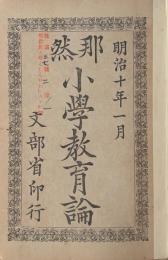 明治十年一月
那然小學教育論
文部省印行